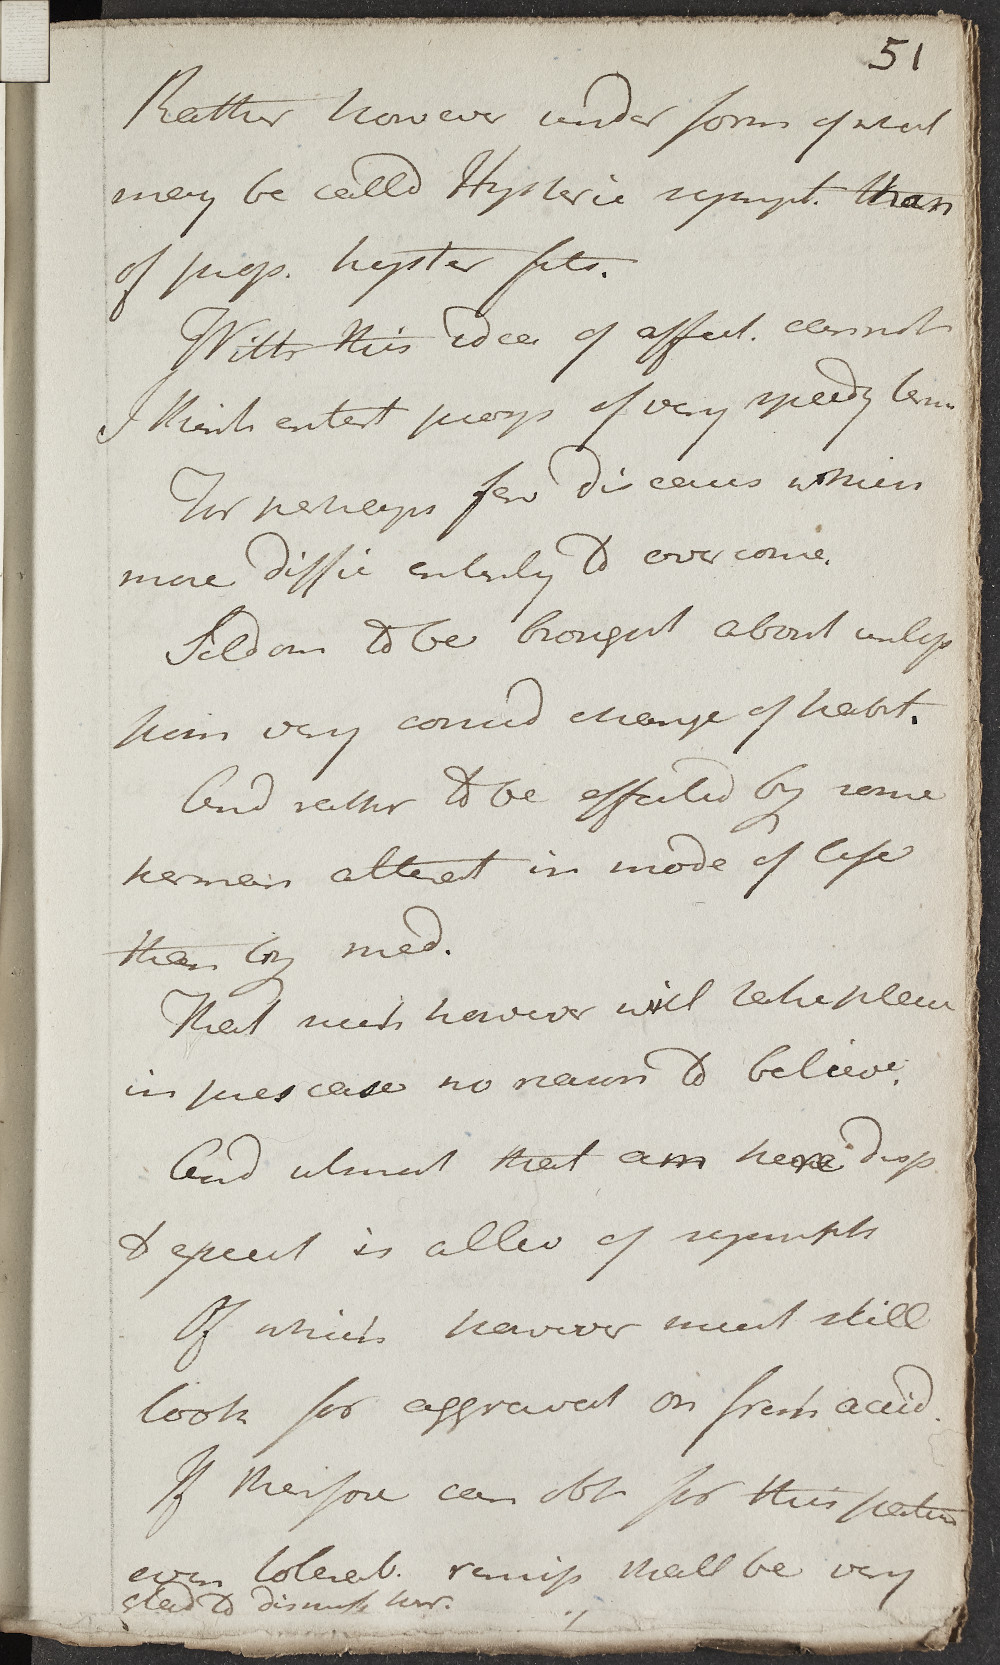 51
Rather however under form of what
may be called Hysteric sympt. than
of prop. hyster fits.
With this idea of affect. cannot
I think entert prosp of very speedy term
For perhaps few diseases which
more diffic entirely to overcome.
Seldom to be brought about unless
from very consid change of habit.
And rather to be effected by some
perman alterat in mode of life
than by med.
That such however will take place
in pres case no reason to believe.
And utmost that am here disp
to expect is allev of sympts
Of which however must still
look for aggravat on fresh accid.
If therefore can obt for this patien
even tolerab. remiss shall be very
glad to dismiss her.